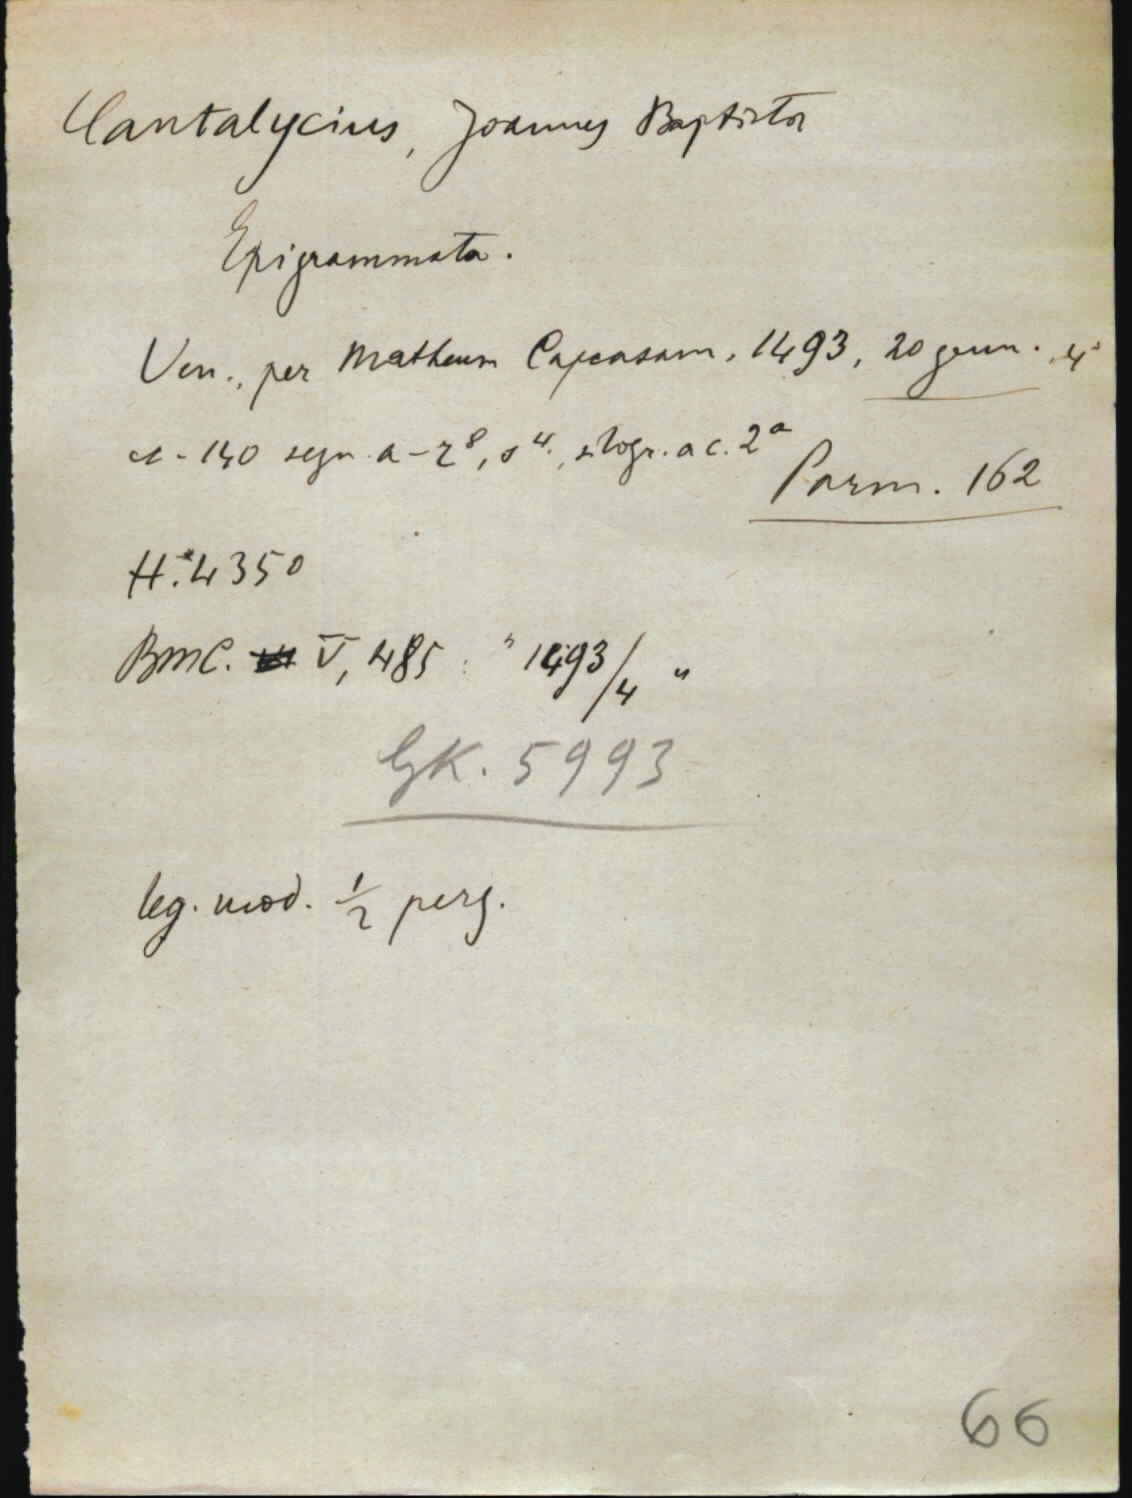 Cantalycius, Joannes Baptista
Epigrammata.
Ven., per Matheum Capcasam, 1493, 20 genn. 4°
cc. 140 segn. a-r⁸, s⁴. silogr. a c. 2ª
Parm. 162
H.*4350
BMC. V, 485: "1493/4"
GK. 5993
leg. mod. ½ perg.
66